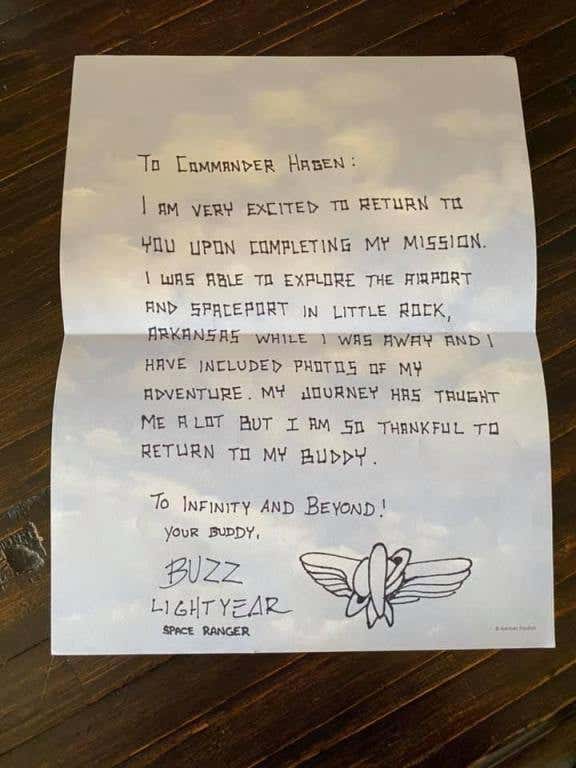 To Commander Hagen:
I AM VERY EXCITED TO RETURN TO
YOU UPON COMPLETING MY MISSION.
I WAS ABLE TO EXPLORE THE AIRPORT
AND SPACEPORT IN LITTLE ROCK,
ARKANSAS WHILE I WAS AWAY AND I
HAVE INCLUDED PHOTOS OF MY
ADVENTURE. MY JOURNEY HAS TAUGHT
ME A LOT BUT I AM SO THANKFUL TO
RETURN TO MY BUDDY.
TO INFINITY AND BEYOND!
YOUR BUDDY,
BUZZ
LIGHTYEAR
SPACE RANGER